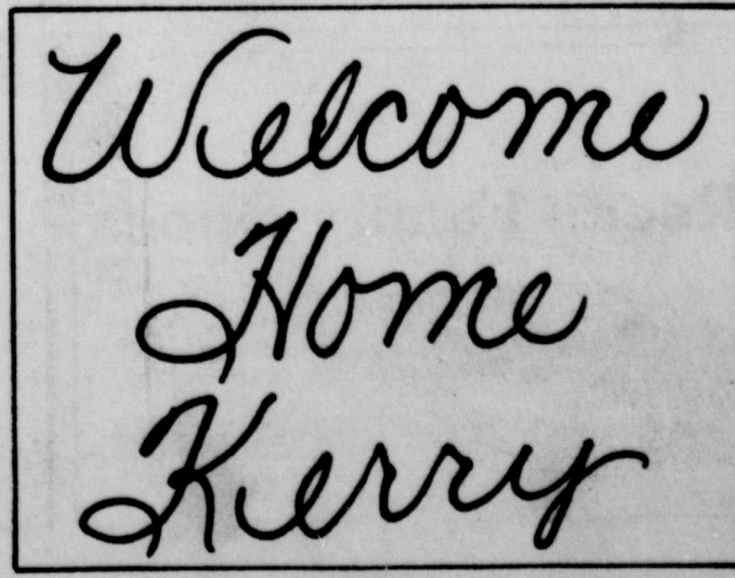 Welcome
Home
Kerry